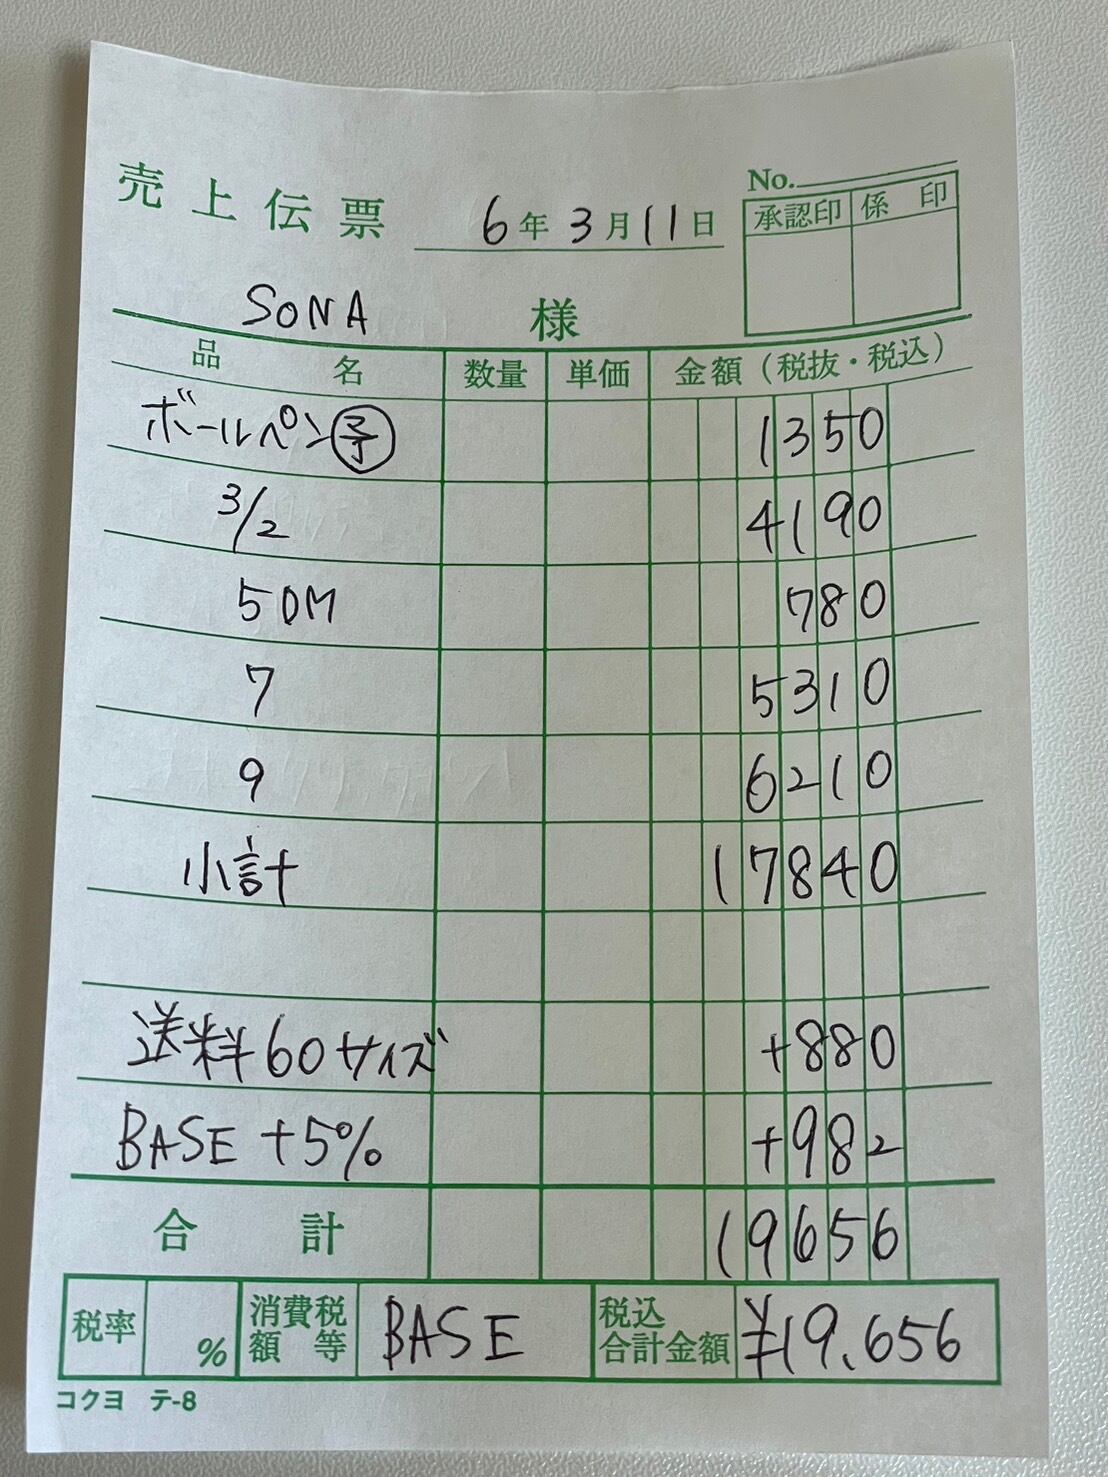 No.
売上伝票 6年3月11日
承認印 係印
SONA 様
品名 数量 単価 金額（税抜・税込）
ボールペン㋵ 1350
3/2 4190
5DM 780
7 5310
9 6210
小計 17840
送料60サイズ +880
BASE +5% +982
合計 19656
税率 % 消費税額等 BASE 税込合計金額 ¥19.656
コクヨ テ-8